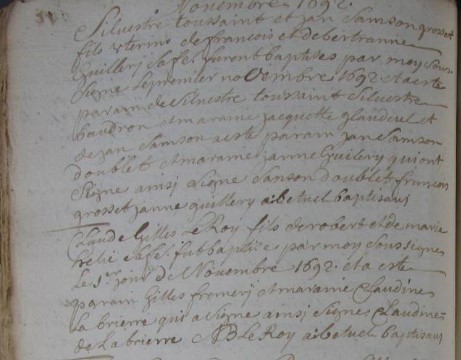 Novembre 1692.
Silvestre toussaint et jan Samson grosset
fils de francois et de bertranne
Guillery Sa fe. furent baptises par moy Sous
Signe le premier novembre 1692 et a este
parain de Silvestre toussaint Silvestre
baudron et maraine jacquette
de jan Samson a este parain jan Samson
doublet et maraine janne Guillery qui ont
Signe ainsi Signe Sanson doublet francois
grosset janne guillery
Claude Gilles Le Roy fils de robert et de marie
Sa fe. fut baptise par moy Soussigne
le 1er jour de Novembre 1692. et a este
parain gilles et maraine Claudine
la brierre qui a Signe ainsi Signe Claudine
de La brierre Le Roy